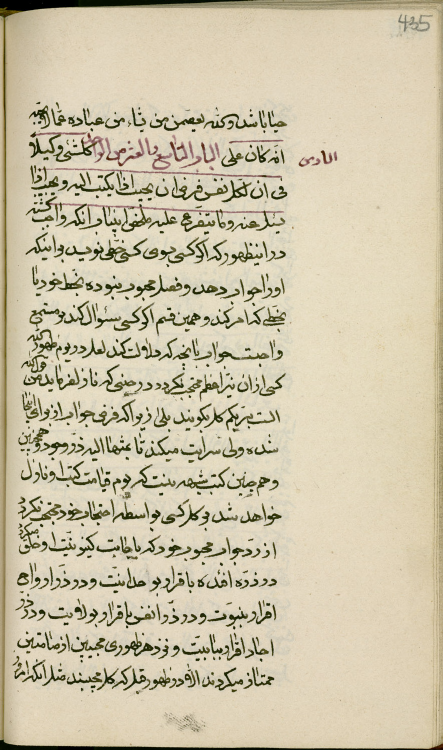 435
حیا باشد ولکنه یعصمن من یشاء من عباده عما لا یحبه
انه کان علی کلشیء وکیلا الباب التاسع والعشر من الواحد
السادس
فی ان لکل نفس فرض ان یجیب اذا یکتب الیه و یجیب اذا
یسئل عنه و ما یتفرع علیه ملخص این باب انکه واجب گشته
در این ظهور که اگر کسی بسوی کسی خطی نویسد بر اینکه
او را جواب دهد و فصل محبوب نبوده بخط خود یا
بخطی که امر کند و همین قسم اگر کسی سئوال کند بر مستمع
واجبست جواب بآنچه که دلالت کند لعل در یوم ظهور الله
کسی از ان نیر اعظم محتجب نگردد در حینی که نازل فرماید
الست بربکم کل گویند بلی زیرا که فرض جواب از برای
شده ولی سرایت میکند تا منتهی الیه ذر وجود و همچنین
و هم چنین کتب شبهه نیست که یوم قیامت کتب او نازل
خواهد شد بر کل کسی بواسطه احتجاب خود محتجب نگردد
از رد جواب محبوب خود که باجابت کینونیت او خلق میگردد
در ذره افئده باقرار بوحدانیت و در ذر ارواح
اقرار بنبوت و در ذر انفس باقرار بولایت و در ذر
اجساد اقرار ببابیت و نزد هر ظهوری مجیبین از صامتین
ممتاز میگردند الا در ظهور قبل که کل مجیبند مثل انکه امروز